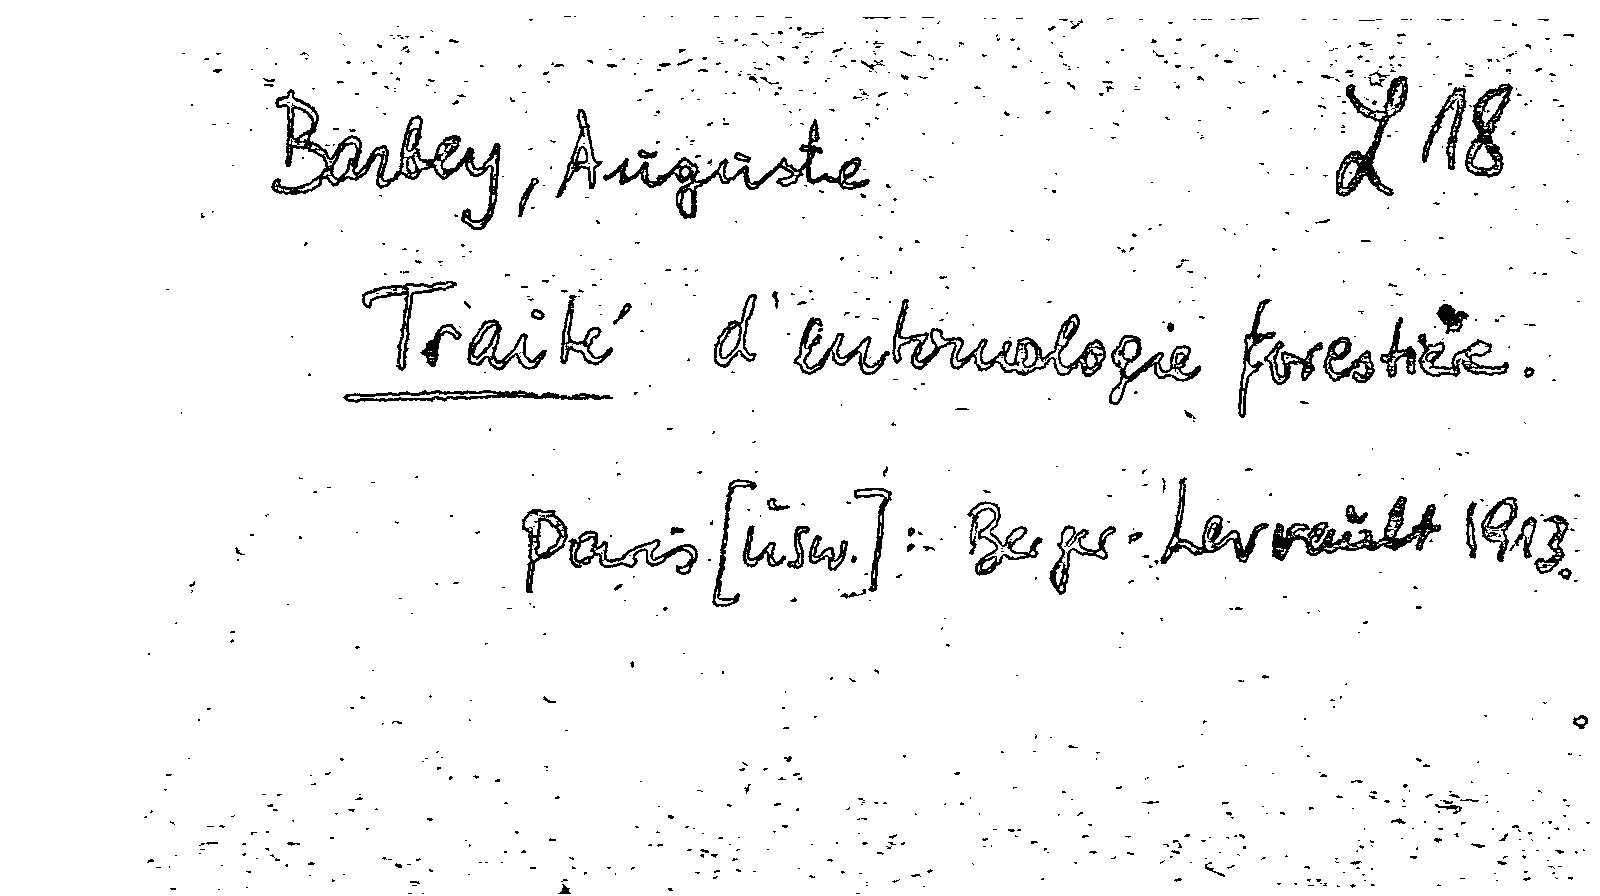 Barbey, Auguste L 18
Traité d'entomologie forestière.
Paris [usw.]: Berger-Levrault 1913.